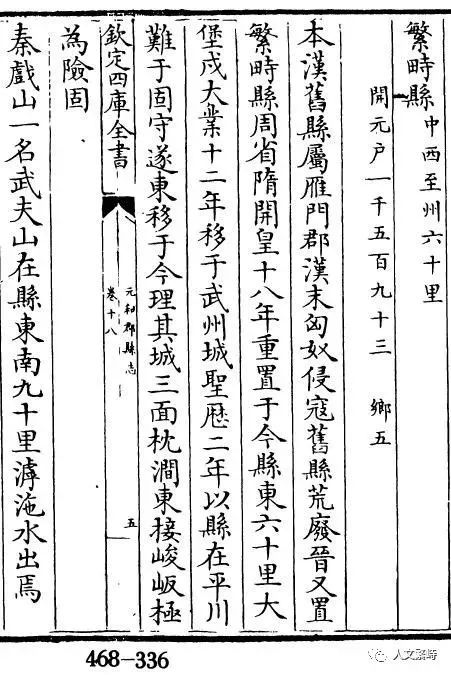 繁畤縣中西至州六十里
開元户一千五百九十三 鄉五
本漢舊縣屬雁門郡漢末匈奴侵寇舊縣荒廢晉又置
繁畤縣周省隋開皇十八年重置于今縣東六十里大
堡戍大業十二年移于武州城聖歴二年以縣在平川
難于固守遂東移于今理其城三面枕澗東接峻坂極
欽定四庫全書
元和郡縣志
卷十八
五
為險固
秦戲山一名武夫山在縣東南九十里滹沱水出焉
468-336
人文繁峙